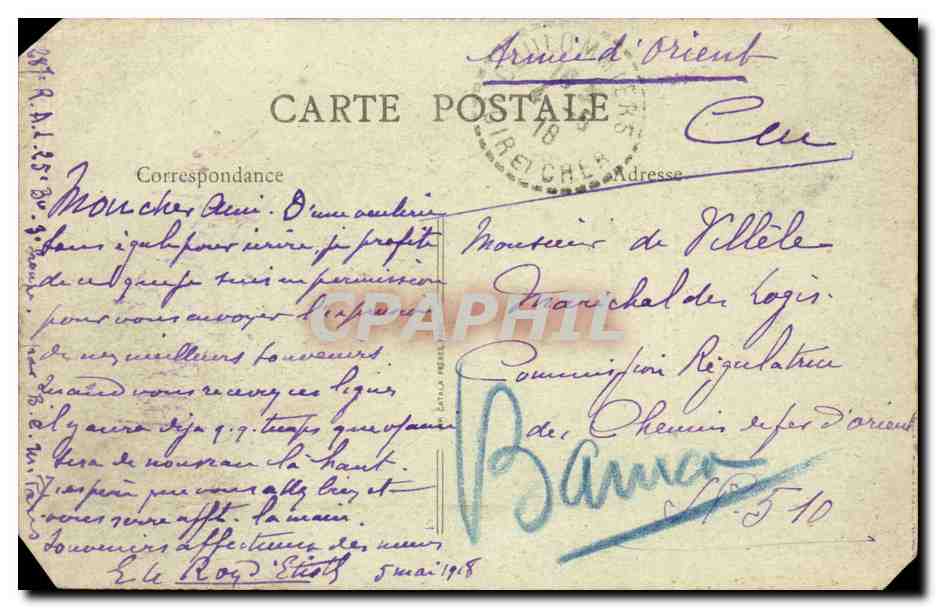 Armée d'Orient
CARTE POSTALE
LOIR-ET-CHER
18
Correspondance
Adresse
Mon cher Ami. D'une
sans égale pour écrire, je profite
de ce que je suis en permission
pour vous envoyer l'expression
de mes meilleurs souvenirs.
Quand vous recevrez ces lignes
il y aura déjà q.q. temps que
sera de nouveau là haut.
J'espère que vous allez bien et
vous serre afft. la main.
Souvenirs affectueux des miens
E. Le Roy d'Etiolles 5 mai 1918
287e R.A.L. 25e
Monsieur de Villèle
Maréchal des Logis.
Commission Régulatrice
des Chemins de fer d'orient
S.P. 510
CATALA FRÈRES
CPAPHIL